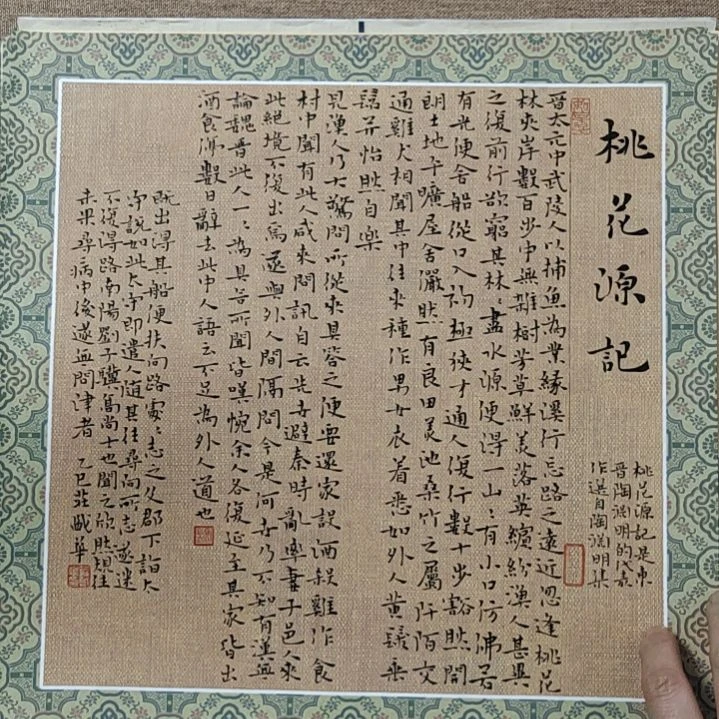 桃花源記
桃花源記是東
晉陶淵明的代表
作選自陶淵明集
晉太元中武陵人以捕魚為業緣溪行忘路之遠近忽逢桃花
林夾岸數百步中無雜樹芳草鮮美落英繽紛漁人甚異
之復前行欲窮其林〻盡水源便得一山〻有小口仿佛若
有光便舍船從口入初極狹才通人復行數十步豁然開
朗土地平曠屋舍儼然有良田美池桑竹之屬阡陌交
通雞犬相聞其中往來種作男女衣着悉如外人黃髮垂
髫并怡然自樂
見漁人乃大驚問所從來具答之便要還家設酒殺雞作食
村中聞有此人咸來問訊自云先世避秦時亂率妻子邑人來
此絕境不復出焉遂與外人間隔問今是何世乃不知有漢無
論魏晉此人一〻為具言所聞皆嘆惋余人各復延至其家皆出
酒食停數日辭去此中人語云不足為外人道也
既出得其船便扶向路處〻志之及郡下詣太
守說如此太守即遣人隨其往尋向所志遂迷
不復得路南陽劉子驥高尚士也聞之欣然規往
未果尋病中後遂無問津者 乙巳莊 華